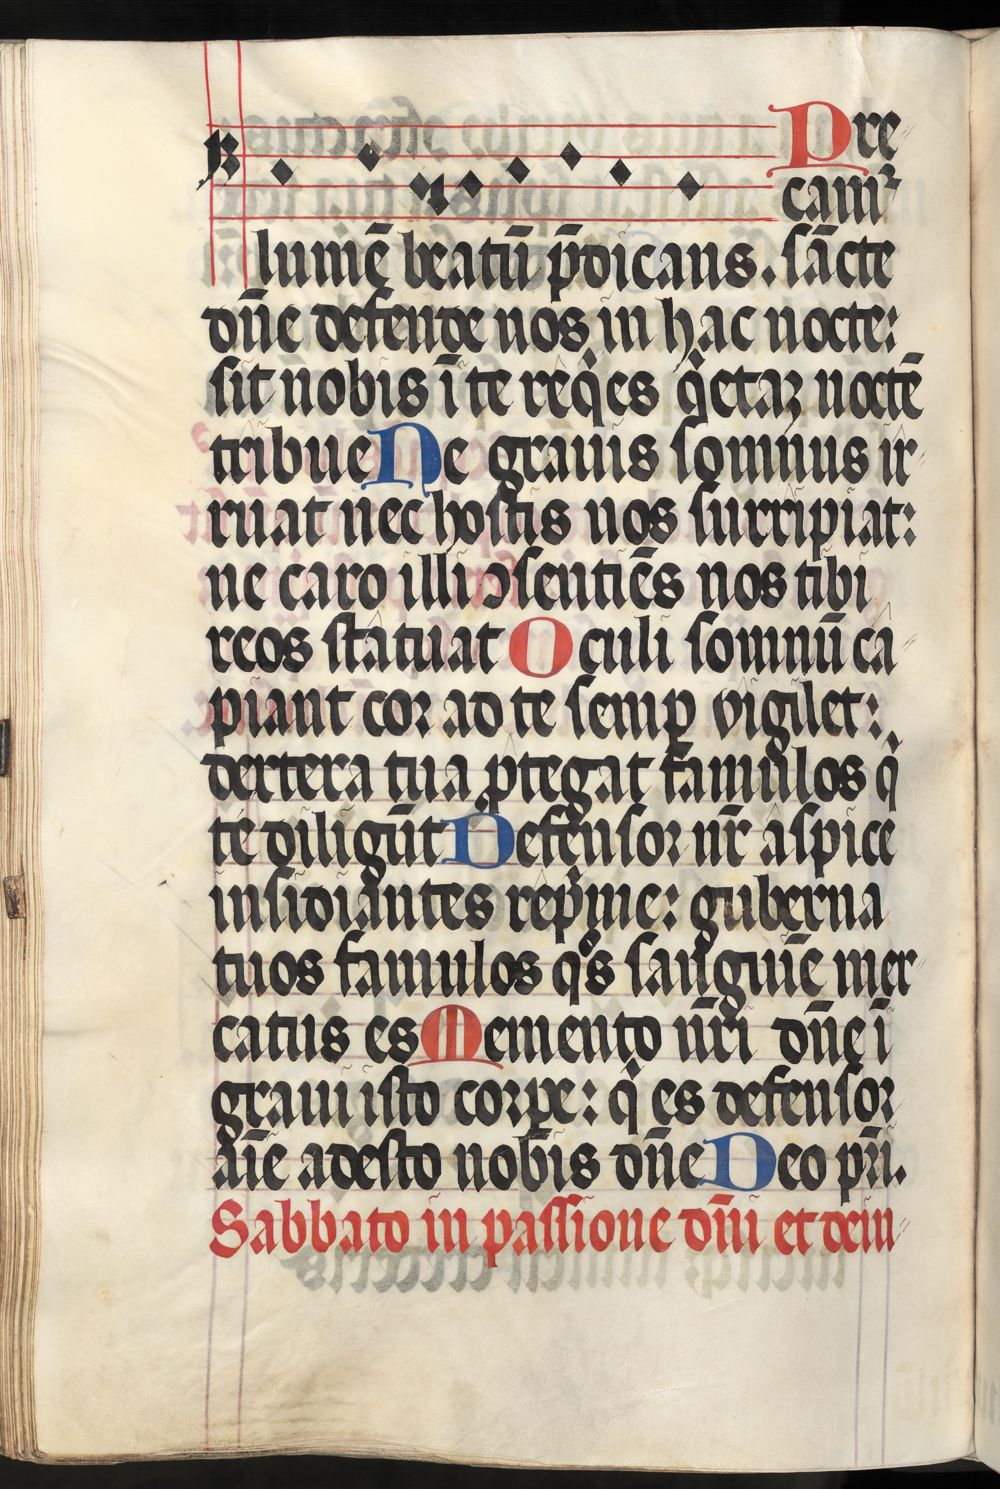 Pre
camʳ
lumē beatū p̄dicans. sācte
dn̄e defende nos in hac nocte:
sit nobis ī te req̇es q̇etaꝫ noctē
tribue Ne grauis somnus ir
ruat nec hostis nos surripiat:
ne caro illi ↄsentiēs nos tibi
reos statuat Oculi somnū ca
piant cor ad te semꝑ vigilet:
dextera tua ꝓtegat famulos q̇
te diligūt Defensor nr̄ aspice
insidiantes rep̍me: guberna
tuos famulos qͦs sanguīe mer
catus es Memento nr̄i dn̄e ī
graui isto corꝑe: q̇ es defensor
aīe adesto nobis dn̄e Deo pr̄i.
Sabbato in passione dn̄i et dein